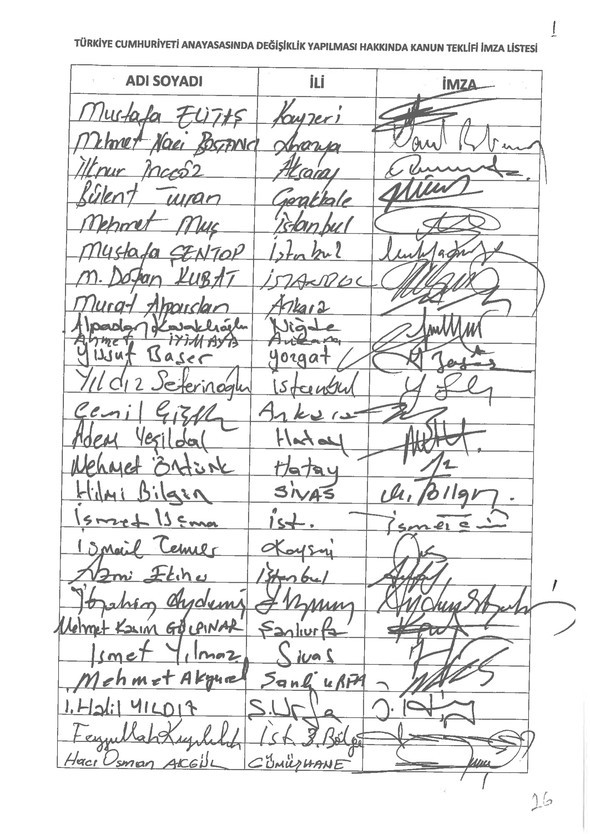 1
TÜRKİYE CUMHURİYETİ ANAYASASINDA DEĞİŞİKLİK YAPILMASI HAKKINDA KANUN TEKLİFİ İMZA LİSTESİ
ADI SOYADI İLİ İMZA
Mustafa ELİTAŞ Kayseri
Mehmet Naci BOSTANCI Amasya
İlknur İNCEÖZ Aksaray
Bülent Turan Çanakkale
Mehmet Muş İstanbul
Mustafa ŞENTOP İstanbul
M. Doğan KUBAT İSTANBUL
Murat Alparslan Ankara
Alparslan Kavaklıoğlu Niğde
Ahmet İYİMAYA Ankara
Yusuf Başer Yozgat
Yıldız Seferinoğlu İstanbul
Cemil Çiçek Ankara
Adem Yeşildal Hatay
Mehmet Öntürk Hatay
Hilmi Bilgin SİVAS H. Bilgin
İsmet Uçma İst.
İsmail Tamer Kayseri
Azmi Ekinci İstanbul
İbrahim Aydemir Erzurum
Mehmet Kasım GÜLPINAR Şanlıurfa
İsmet Yılmaz Sivas
Mehmet Akyürek Şanlıurfa
İ. Halil YILDIZ Ş. Urfa
Feyzullah Kıyıklık İst. 3. Bölge
Hacı Osman AKGÜL GÜMÜŞHANE
26